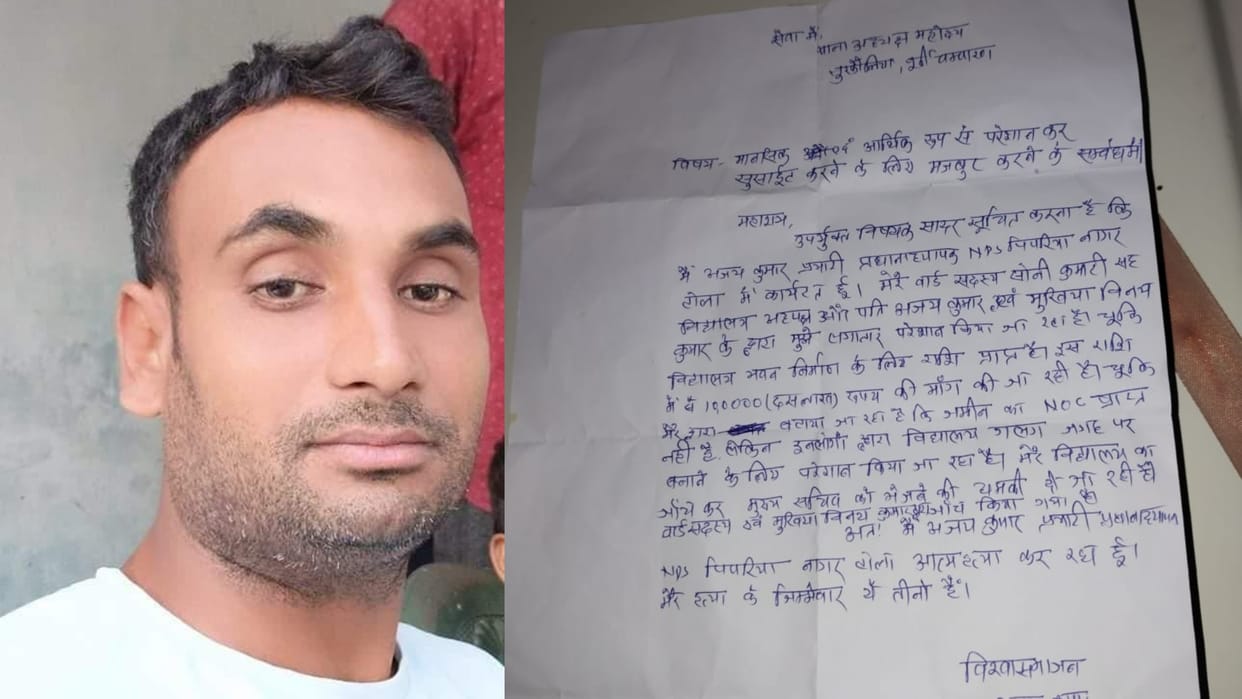 सेवा में,
थाना अध्यक्ष महोदय
तुरकौलिया, पूर्वी चम्पारण
विषय - मानसिक एवं आर्थिक रूप से परेशान कर
सुसाईट करने के लिए मजबुर करने के सम्बंध में।
महाशय,
उपर्युक्त विषयक सादर सूचित करना है कि
मैं अजय कुमार प्रभारी प्रधानाध्यापक NPS पिपरिया नागर
टोला में कार्यरत हूँ। मेरे वार्ड सदस्य सोनी कुमारी सह
विद्यालय अध्यक्ष और पति अजय कुमार एवं मुखिया विनय
कुमार के द्वारा मुझे लगातार परेशान किया जा रहा है। चूकि
विद्यालय भवन निर्माण के लिए राशि प्राप्त है। इस राशि
में से 100000 (दस लाख) रूपय की माँग की जा रही है। चूकि
मेरे द्वारा बताया जा रहा है कि जमीन का NOC प्राप्त
नहीं है लेकिन इनलोगों द्वारा विद्यालय गलग जगह पर
बनाने के लिए परेशान किया जा रहा है। मेरे विद्यालय का
जाँच कर मुख्य सचिव को भेजने की धमकी दी जा रही है
वार्ड सदस्य एवं मुखिया विनय कुमार द्वारा जाँच किया गया है
अतः मैं अजय कुमार प्रभारी प्रधानाध्यापक
NPS पिपरिया नागर टोला आत्महत्या कर रहा हूँ।
मेरे हत्या के जिम्मेवार ये तीनो है।
विश्वासभाजन